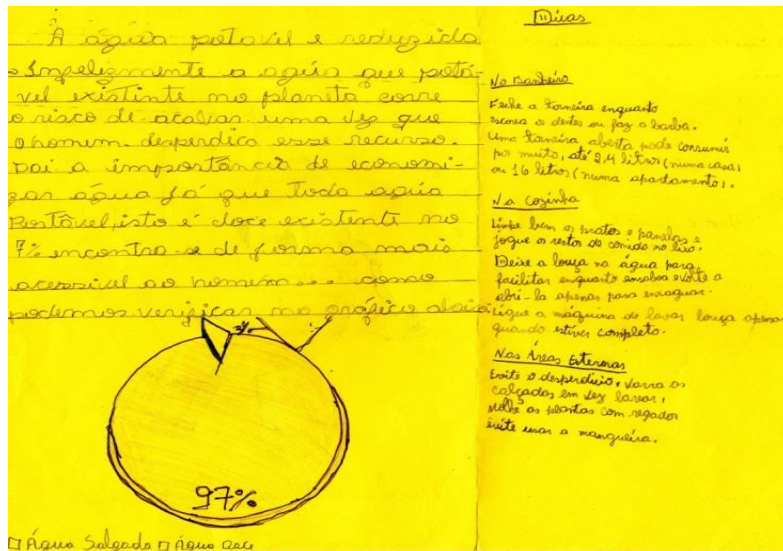 A água potavel e reduzida
Impelizmente a agúa que potá-
vel existinte no planeta corre
o risco de acabar uma vez que
o homem desperdiça esse recurso.
Dai a importância de economi-
zar agúa já que toda agúa
isto é doce existente no
7% encontra se de forma mais
acessivel ao homem... como
podemos verificar no gráfico abaixo
3%
97%
Água Salgada Água Doce
Dicas
No Banheiro
Feche a torneira enquanto
escova os dentes ou faz a barba.
Uma torneira aberta pode consumir
por muito, até 2,4 litros (numa casa)
ou 16 litros (numa apartamento).
Na Cozinha
Limpe bem os pratos e panelas e
jogue os restos de comida no lixo.
Deixe a louça na água para
facilitar enquanto ensaboa evite a
abri-la apenas para enxaguar.
Ligue a máquina de lavar louça apena
quando estiver completo.
Nas Áreas Externas
Evite o desperdicio, varra as
calçadas em vez lavar,
Molhe as plantas com regador
evite usar a mangueira.